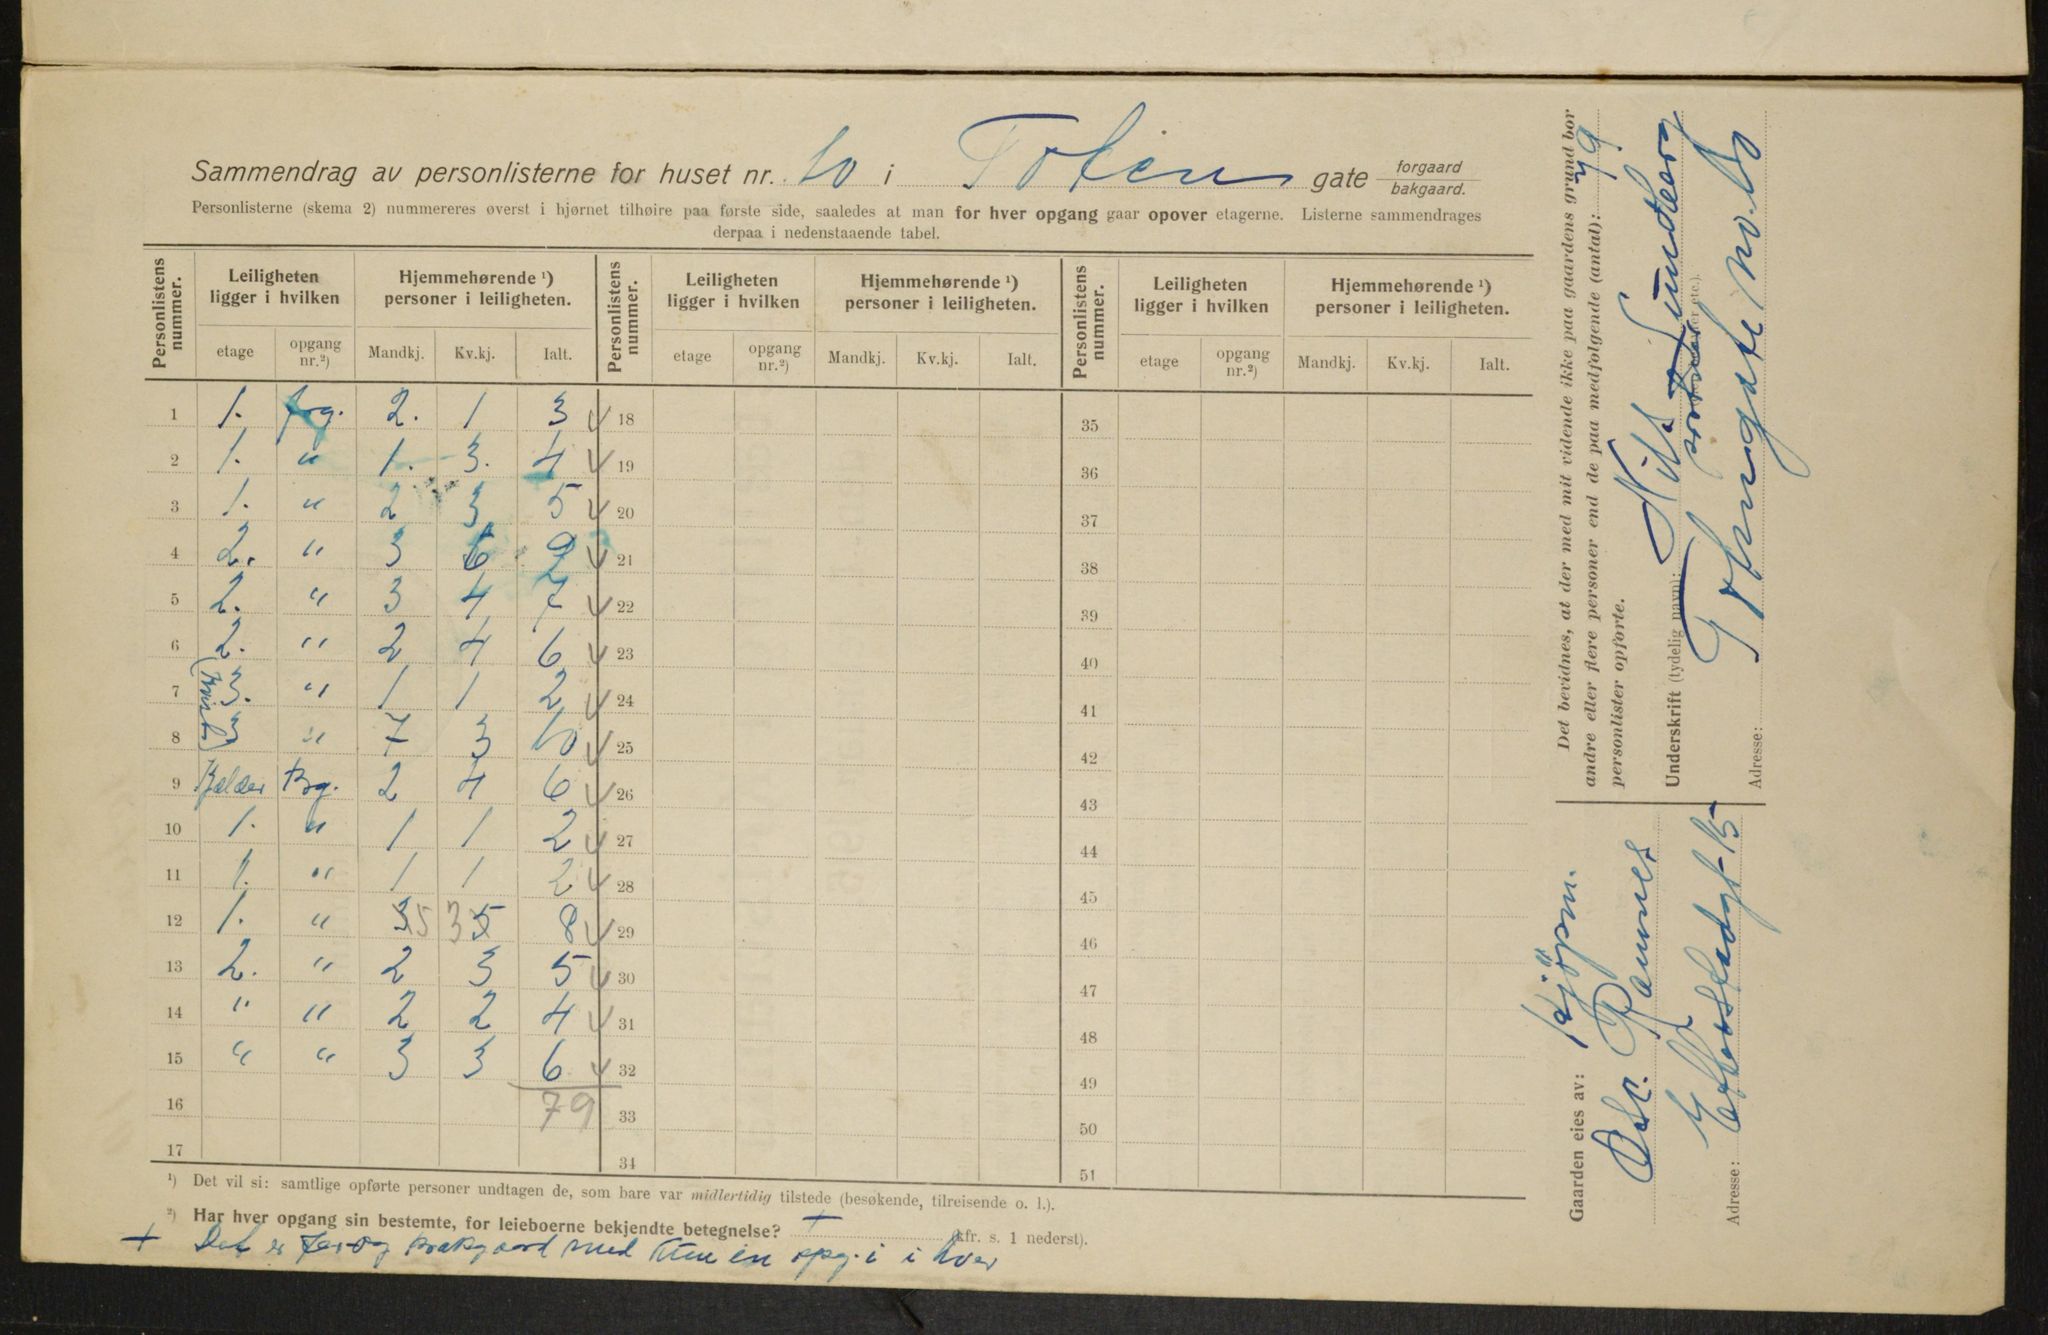 Sammendrag av personlisterne for huset nr. 10 i Toten gate forgaard bakgaard.
Personlisterne (skema 2) nummereres øverst i hjørnet tilhøire paa første side, saaledes at man for hver opgang gaar opover etagerne. Listerne sammendrages
derpaa i nedenstaaende tabel.
Personlistens nummer. Leiligheten ligger i hvilken Hjemmehørende ¹) personer i leiligheten. Personlistens nummer. Leiligheten ligger i hvilken Hjemmehørende ¹) personer i leiligheten. Personlistens nummer. Leiligheten ligger i hvilken Hjemmehørende ¹) personer i leiligheten.
etage opgang nr.²) Mandkj. Kv.kj. Ialt. etage opgang nr.²) Mandkj. Kv.kj. Ialt. etage opgang nr.²) Mandkj. Kv.kj. Ialt.
1 1. forg. 2. 1 3 18 35
2 1. " 1. 3. 4 19 36
3 1. " 2 3 5 20 37
4 2. " 3 6 9 21 38
5 2. " 3 4 7 22 39
6 2. " 2 4 6 23 40
7 (Kvist 3. " 1 1 2 24 41
8 3 " 7 3 10 25 42
9 Kjælder Bg. 2 4 6 26 43
10 1. " 1 1 2 27 44
11 1. " 1 1 2 28 45
12 1. " 3 5 3 5 8 29 46
13 2. " 2 3 5 30 47
14 " " 2 2 4 31 48
15 " " 3 3 6 32 49
16 79 33 50
17 34 51
¹) Det vil si: samtlige opførte personer undtagen de, som bare var midlertidig tilstede (besøkende, tilreisende o. l.).
²) Har hver opgang sin bestemte, for leieboerne bekjendte betegnelse? + (kfr. s. 1 nederst).
+ Det er for og bakgaard med kun en opg. i hver
Det bevidnes, at der med mit vidende ikke paa gaardens grund bor
andre eller flere personer end de paa medfølgende (antal): 79
personlister opførte.
Underskrift (tydelig navn): Nils Lundberg
Adresse: Totengate No. 10
Gaarden eies av: Kjöpm.
Adresse: